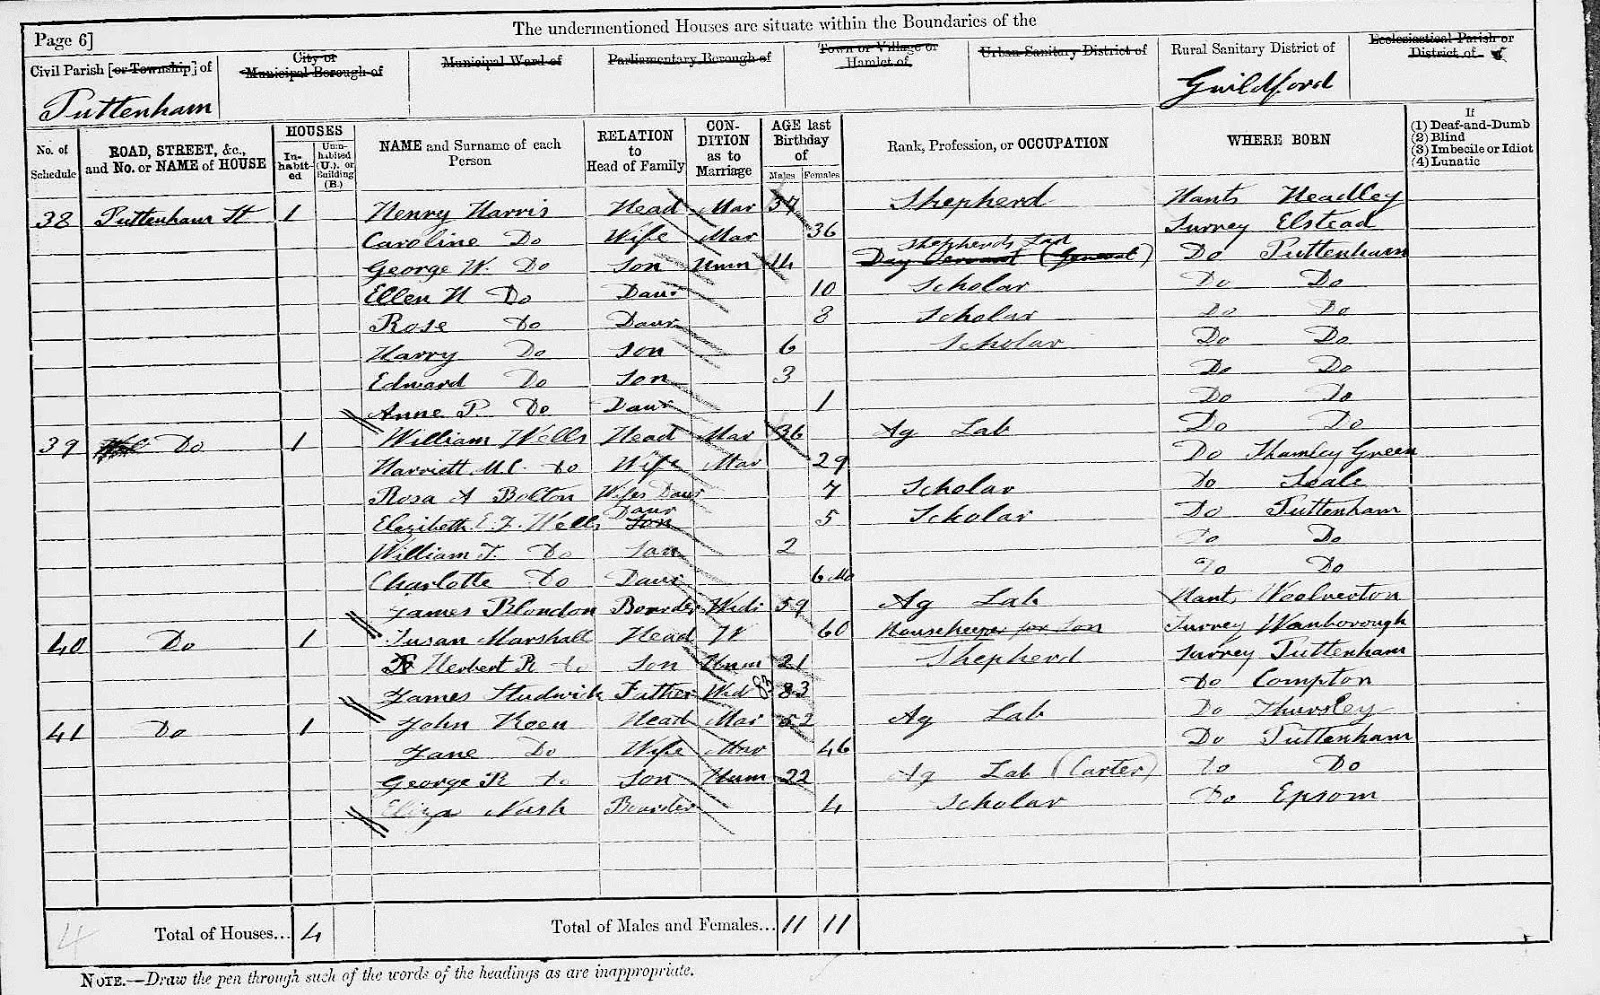 The undermentioned Houses are situate within the Boundaries of the
Page 6]
Civil Parish [or Township] of
City or Municipal Borough of
Municipal Ward of
Parliamentary Borough of
Town or Village or Hamlet of
Urban Sanitary District of
Rural Sanitary District of
Ecclesiastical Parish or District of
Puttenham
Guildford
No. of Schedule
ROAD, STREET, &c., and No. or NAME of HOUSE
HOUSES
In-habit-ed
Unin-habited (U.), or Building (B.)
NAME and Surname of each Person
RELATION to Head of Family
CON-DITION as to Marriage
AGE last Birthday of
Males Females
Rank, Profession, or OCCUPATION
WHERE BORN
If
(1) Deaf-and-Dumb
(2) Blind
(3) Imbecile or Idiot
(4) Lunatic
38 Puttenham St 1 Henry Harris Head Mar 37 Shepherd Hants Headley
Caroline Do Wife Mar 36 Surrey Elstead
George W. Do Son Unm 14 Shepherds Lad Day Servant (General) Do Puttenham
Ellen H Do Daur 10 Scholar Do Do
Rose Do Daur 8 Scholar Do Do
Harry Do Son 6 Scholar Do Do
Edward Do Son 3 Do Do
Anne P. Do Daur 1 Do Do
39 Do 1 William Wells Head Mar 36 Ag Lab Do Do
Harriett M.C. Do Wife Mar 29 Do Green
Rosa A Bolton Wifes Daur 7 Scholar Do Seale
Elizibeth E. J. Wells Daur Son 5 Scholar Do Puttenham
William T. Do Son 2 Do Do
Charlotte Do Daur 6 mo Do Do
James Blondon Boarder Wid 59 Ag Lab Hants Woolverton
40 Do 1 Susan Marshall Head W 60 Housekeeper for Son Surrey Wanborough
Herbert R Do Son Unm 21 Shepherd Surrey Puttenham
James Studwick Father Wid 83 83 Do Compton
41 Do 1 John Keen Head Mar 52 Ag Lab Do Thursley
Jane Do Wife Mar 46 Do Puttenham
George R Do Son Unm 22 Ag Lab (Carter) Do Do
Eliza Nash Boarder 4 Scholar Do Epsom
4
Total of Houses... 4
Total of Males and Females... 11 11
NOTE.—Draw the pen through such of the words of the headings as are inappropriate.